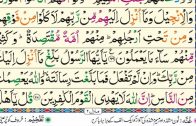 الْاِنْجِيْلَ وَمَآ اُنْزِلَ اِلَيْهِمْ مِّنْ رَّبِّهِمْ لَاَكَلُوْا مِنْ فَوْقِهِمْ
وَمِنْ تَحْتِ اَرْجُلِهِمْ ؕ مِنْهُمْ اُمَّةٌ مُّقْتَصِدَةٌ ؕ وَكَثِيْرٌ
مِّنْهُمْ سَآءَ مَا يَعْمَلُوْنَ يٰۤاَيُّهَا الرَّسُوْلُ بَلِّغْ مَآ اُنْزِلَ اِلَيْكَ
مِنْ رَّبِّكَ ؕ وَاِنْ لَّمْ تَفْعَلْ فَمَا بَلَّغْتَ رِسَالَتَهٗ ؕ وَاللّٰهُ يَعْصِمُكَ
مِنَ النَّاسِ ؕ اِنَّ اللّٰهَ لَا يَهْدِى الْقَوْمَ الْكٰفِرِيْنَ